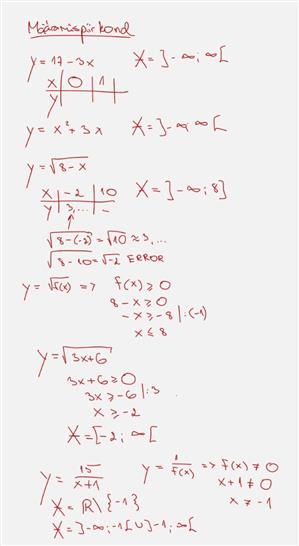 Määramispiirkond
y = 17 - 3x X = ]-∞; ∞[
x | 0 | 1 |
y | | |
y = x² + 3x X = ]-∞; ∞[
y = √(8-x)
x | -2 | 10 X = ]-∞; 8]
y | 3,... | -
√(8-(-2)) = √10 ≈ 3,...
√(8-10) = √-2 ERROR
y = √f(x) => f(x) ≥ 0
8 - x ≥ 0
-x ≥ -8 |:(-1)
x ≤ 8
y = √(3x+6)
3x+6 ≥ 0
3x ≥ -6 |:3
x ≥ -2
X = [-2; ∞[
y = 15/(x+1) y = 1/f(x) => f(x) ≠ 0
x+1 ≠ 0
X = R\{-1} x ≠ -1
X = ]-∞; -1[ U ]-1; ∞[